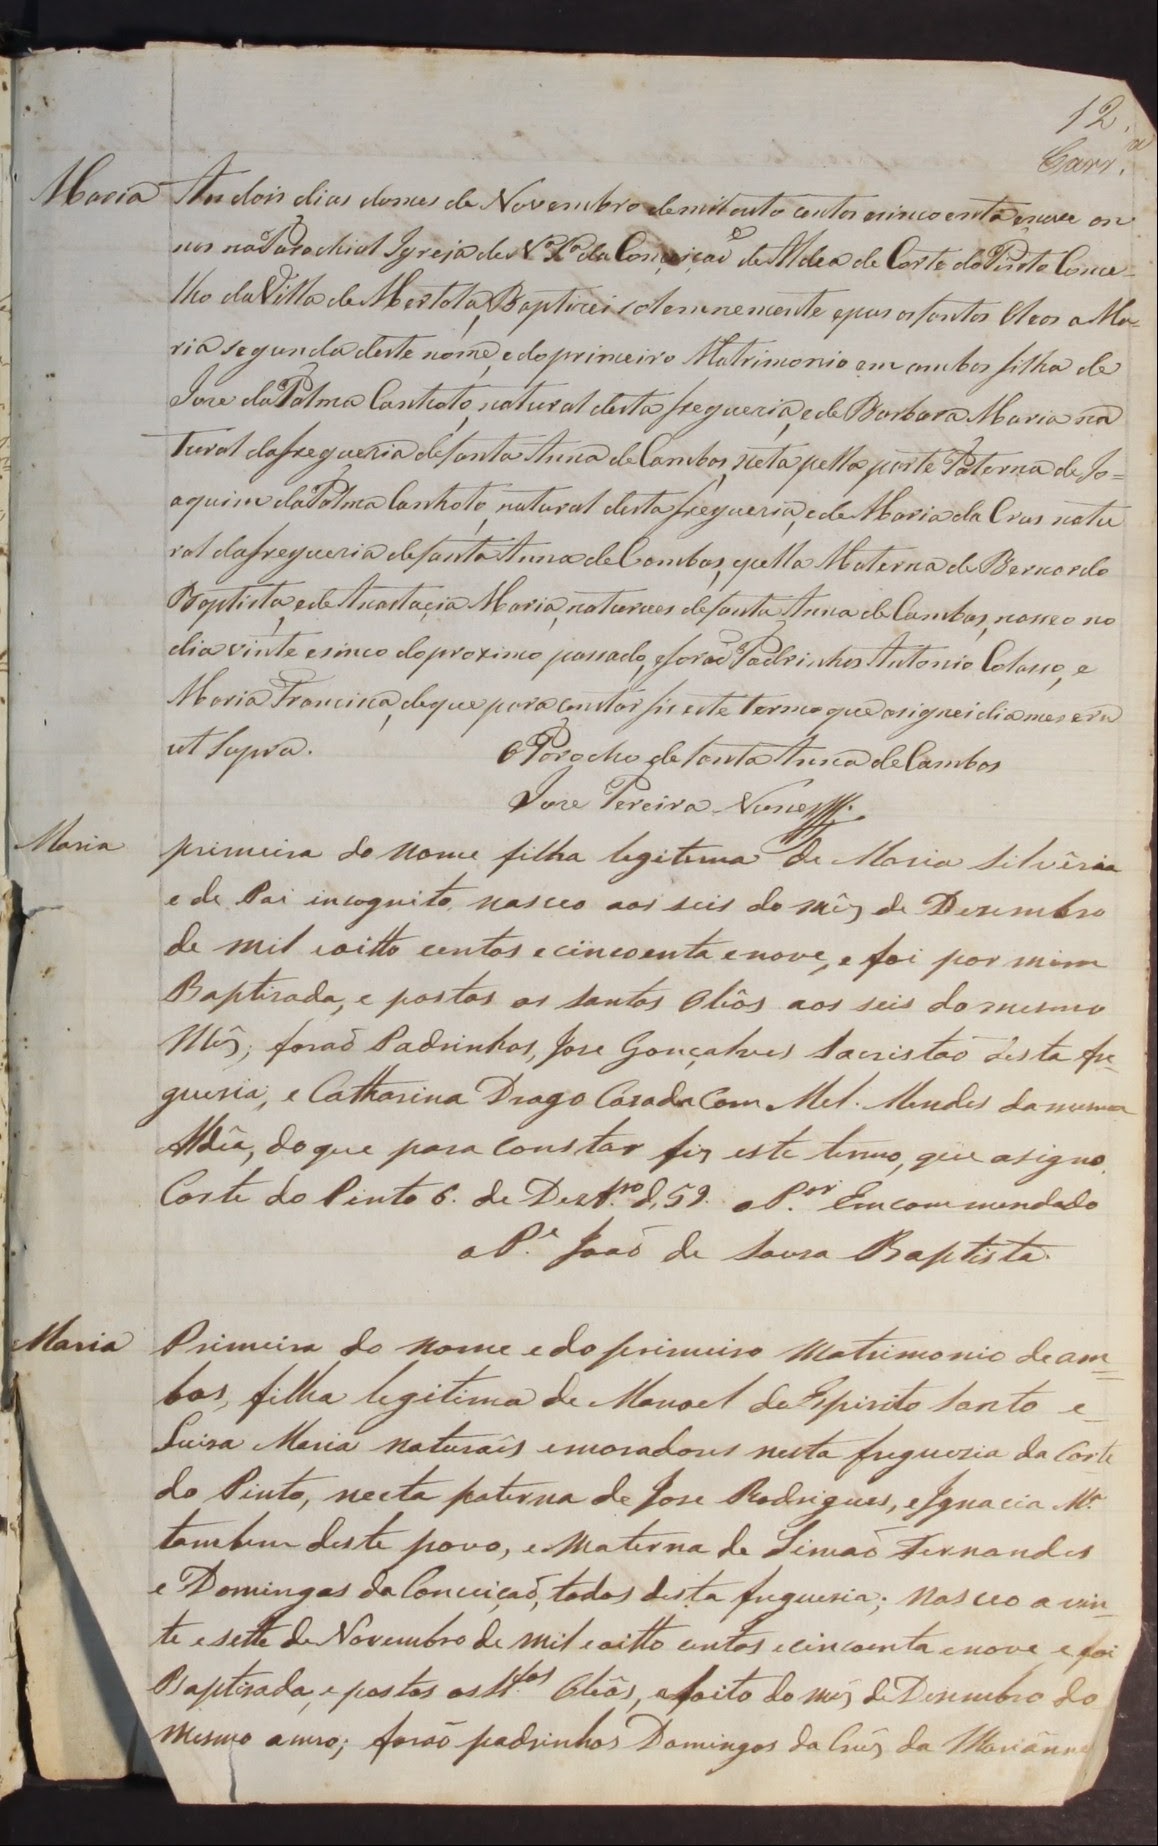 12.
Carr.ª
Maria Aos dois dias do mes de Novembro de mil outo centos e sincoenta e nove an
nos na Parochial Igreja de N. Sª. da Conceiçaõ de Aldea de Corte do Pinto Conce-
lho da Villa de Mertola, Baptizei solemnemente e pus os santos Oleos a Ma-
ria segunda deste nome, e do primeiro Matrimonio em ambos filha de
Jose da Palma Canhoto, natural desta fregueria, e de Barbara Maria na
tural da fregueria de santa Anna de Cambas, neta pella parte Paterna de Jo=
aquim da Palma Canhoto, natural desta fregueria, e de Maria da Crus natu
ral da fregueria de santa Anna de Cambas, e pella Materna de Bernardo
Baptista, e de Anastaçia Maria, naturaes de santa Anna de Cambas, nasceo no
dia vinte e sinco do proximo passado, e foraõ Padrinhos Antonio Colasso, e
Maria Francisca, de que para constar fis este termo que asignei dia mes era
ut supra. O Parocho de santa Anna de Cambas
Jose Pereira Nunes
Maria primeira do nome filha legitima de Maria Silvêria
e de Pai incognito, nasceo aos seis do mês de Dezembro
de mil e oitto centos e cincoenta e nove, e foi por mim
Baptisada, e postos os santos Oliôs aos seis do mesmo
Mês; foraõ Padrinhos, Jose Gonçalves Sacristaõ desta fre-
gueria, e Catharina Drago Casada Com Mel. Mendes da mesma
Aldêa, do que para constar fiz este termo, que asigno.
Corte do Pinto 6. de Dezbr.º d, 59. o P.or Emcommendado
o P.e Joaõ de Sousa Baptista.
Maria Primeira do nome e do primeiro Matrimonio de am=
bos, filha legitima de Manoel do Espirito Santo e
Luisa Maria naturaîs e moradores nesta fregueria da Corte
do Pinto, neeta paterna de Jose Rodrigues, e Ignacia Mª
tambem deste povo, e Materna de Simaõ Fernandes
e Domingas da Conceiçaõ, todos desta fregueria; nasceo a vin-
te e sette de Novembro de mil e oitto centos e cincoenta e nove e foi
Baptisada, e postos os S.tos Oliôs, a oito do mês de Dezembro do
mesmo anno; foraõ padrinhos Domingos da Crûs da Mariânna